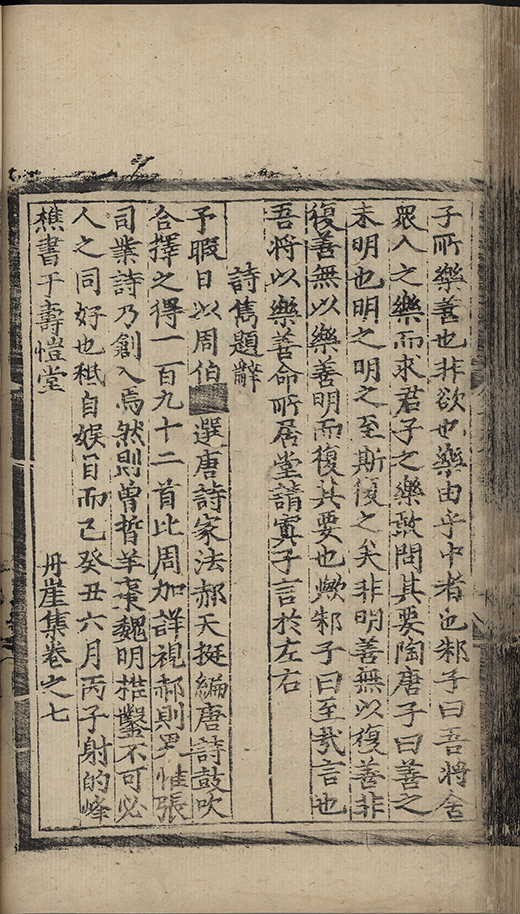 子所樂善也非欲也樂由乎中者也郟子曰吾將舍
衆人之樂而求君子之樂敢問其要陶唐子曰善之
未明也明之明之至斯復之矣非明善無以復善非
復善無以樂善明而復其要也歟郟子曰至哉言也
吾將以樂善命所居堂請寘子言於左右
詩雋題辭
予暇日以周伯 選唐詩家法郝天挺編唐詩鼓吹
合擇之得一百九十二首比周加詳視郝則 惟張
司業詩乃創入焉然則曾晳羊棗魏明椎鑿不可必
人之同好也秪自娛目而已癸丑六月丙子射的峰
樵書于壽愷堂
丹崖集卷之七